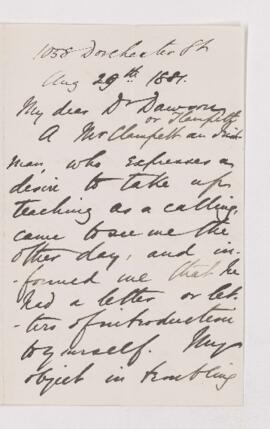 1058 Dorchester St
Aug 29th 1881.
My dear Dr Dawson
or Hampett
A Mr Clampett an Irish
man, who expresses a
desire to take up
teaching as a calling,
came to see me the
other day, and in-
formed me that he
had a letter or let-
-ters of introduction
to yourself. My
object in troubling